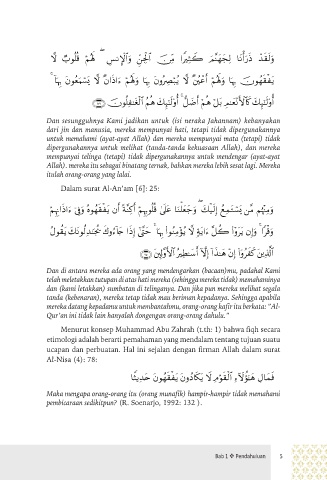 وَلَقَدْ ذَرَأْنَا لِجَهَنَّمَ كَثِيرًا مِّنَ الْجِنِّ وَالْإِنسِ لَهُمْ قُلُوبٌ لَّا
يَفْقَهُونَ بِهَا وَلَهُمْ أَعْيُنٌ لَّا يُبْصِرُونَ بِهَا وَلَهُمْ ءَاذَانٌ لَّا يَسْمَعُونَ بِهَا
أُولَٰئِكَ كَالْأَنْعَٰمِ بَلْ هُمْ أَضَلُّ أُولَٰئِكَ هُمُ الْغَٰفِلُونَ
Dan sesungguhnya Kami jadikan untuk (isi neraka Jahannam) kebanyakan
dari jin dan manusia, mereka mempunyai hati, tetapi tidak dipergunakannya
untuk memahami (ayat-ayat Allah) dan mereka mempunyai mata (tetapi) tidak
dipergunakannya untuk melihat (tanda-tanda kekuasaan Allah), dan mereka
mempunyai telinga (tetapi) tidak dipergunakannya untuk mendengar (ayat-ayat
Allah). mereka itu sebagai binatang ternak, bahkan mereka lebih sesat lagi. Mereka
itulah orang-orang yang lalai.
Dalam surat Al-An'am [6]: 25:
وَمِنْهُم مَّن يَسْتَمِعُ إِلَيْكَ وَجَعَلْنَا عَلَىٰ قُلُوبِهِمْ أَكِنَّةً أَن يَفْقَهُوهُ وَفِي ءَاذَانِهِمْ
وَقْرًا وَإِن يَرَوْا كُلَّ ءَايَةٍ لَّا يُؤْمِنُوا بِهَا حَتَّىٰ إِذَا جَاءُوكَ يُجَٰدِلُونَكَ يَقُولُ
الَّذِينَ كَفَرُوا إِنْ هَٰذَا إِلَّا أَسَٰطِيرُ الْأَوَّلِينَ
Dan di antara mereka ada orang yang mendengarkan (bacaan)mu, padahal Kami
telah meletakkan tutupan di atas hati mereka (sehingga mereka tidak) memahaminya
dan (kami letakkan) sumbatan di telinganya. Dan jika pun mereka melihat segala
tanda (kebenaran), mereka tetap tidak mau beriman kepadanya. Sehingga apabila
mereka datang kepadamu untuk membantahmu, orang-orang kafir itu berkata: "Al-
Qur'an ini tidak lain hanyalah dongengan orang-orang dahulu."
Menurut konsep Muhammad Abu Zahrah (t.th: 1) bahwa fiqh secara
etimologi adalah berarti pemahaman yang mendalam tentang tujuan suatu
ucapan dan perbuatan. Hal ini sejalan dengan firman Allah dalam surat
Al-Nisa (4): 78:
فَمَالِ هَٰؤُلَاءِ الْقَوْمِ لَا يَكَادُونَ يَفْقَهُونَ حَدِيثًا
Maka mengapa orang-orang itu (orang munafik) hampir-hampir tidak memahami
pembicaraan sedikitpun? (R. Soenarjo, 1992: 132 ).
Bab 1 ❖ Pendahuluan 5